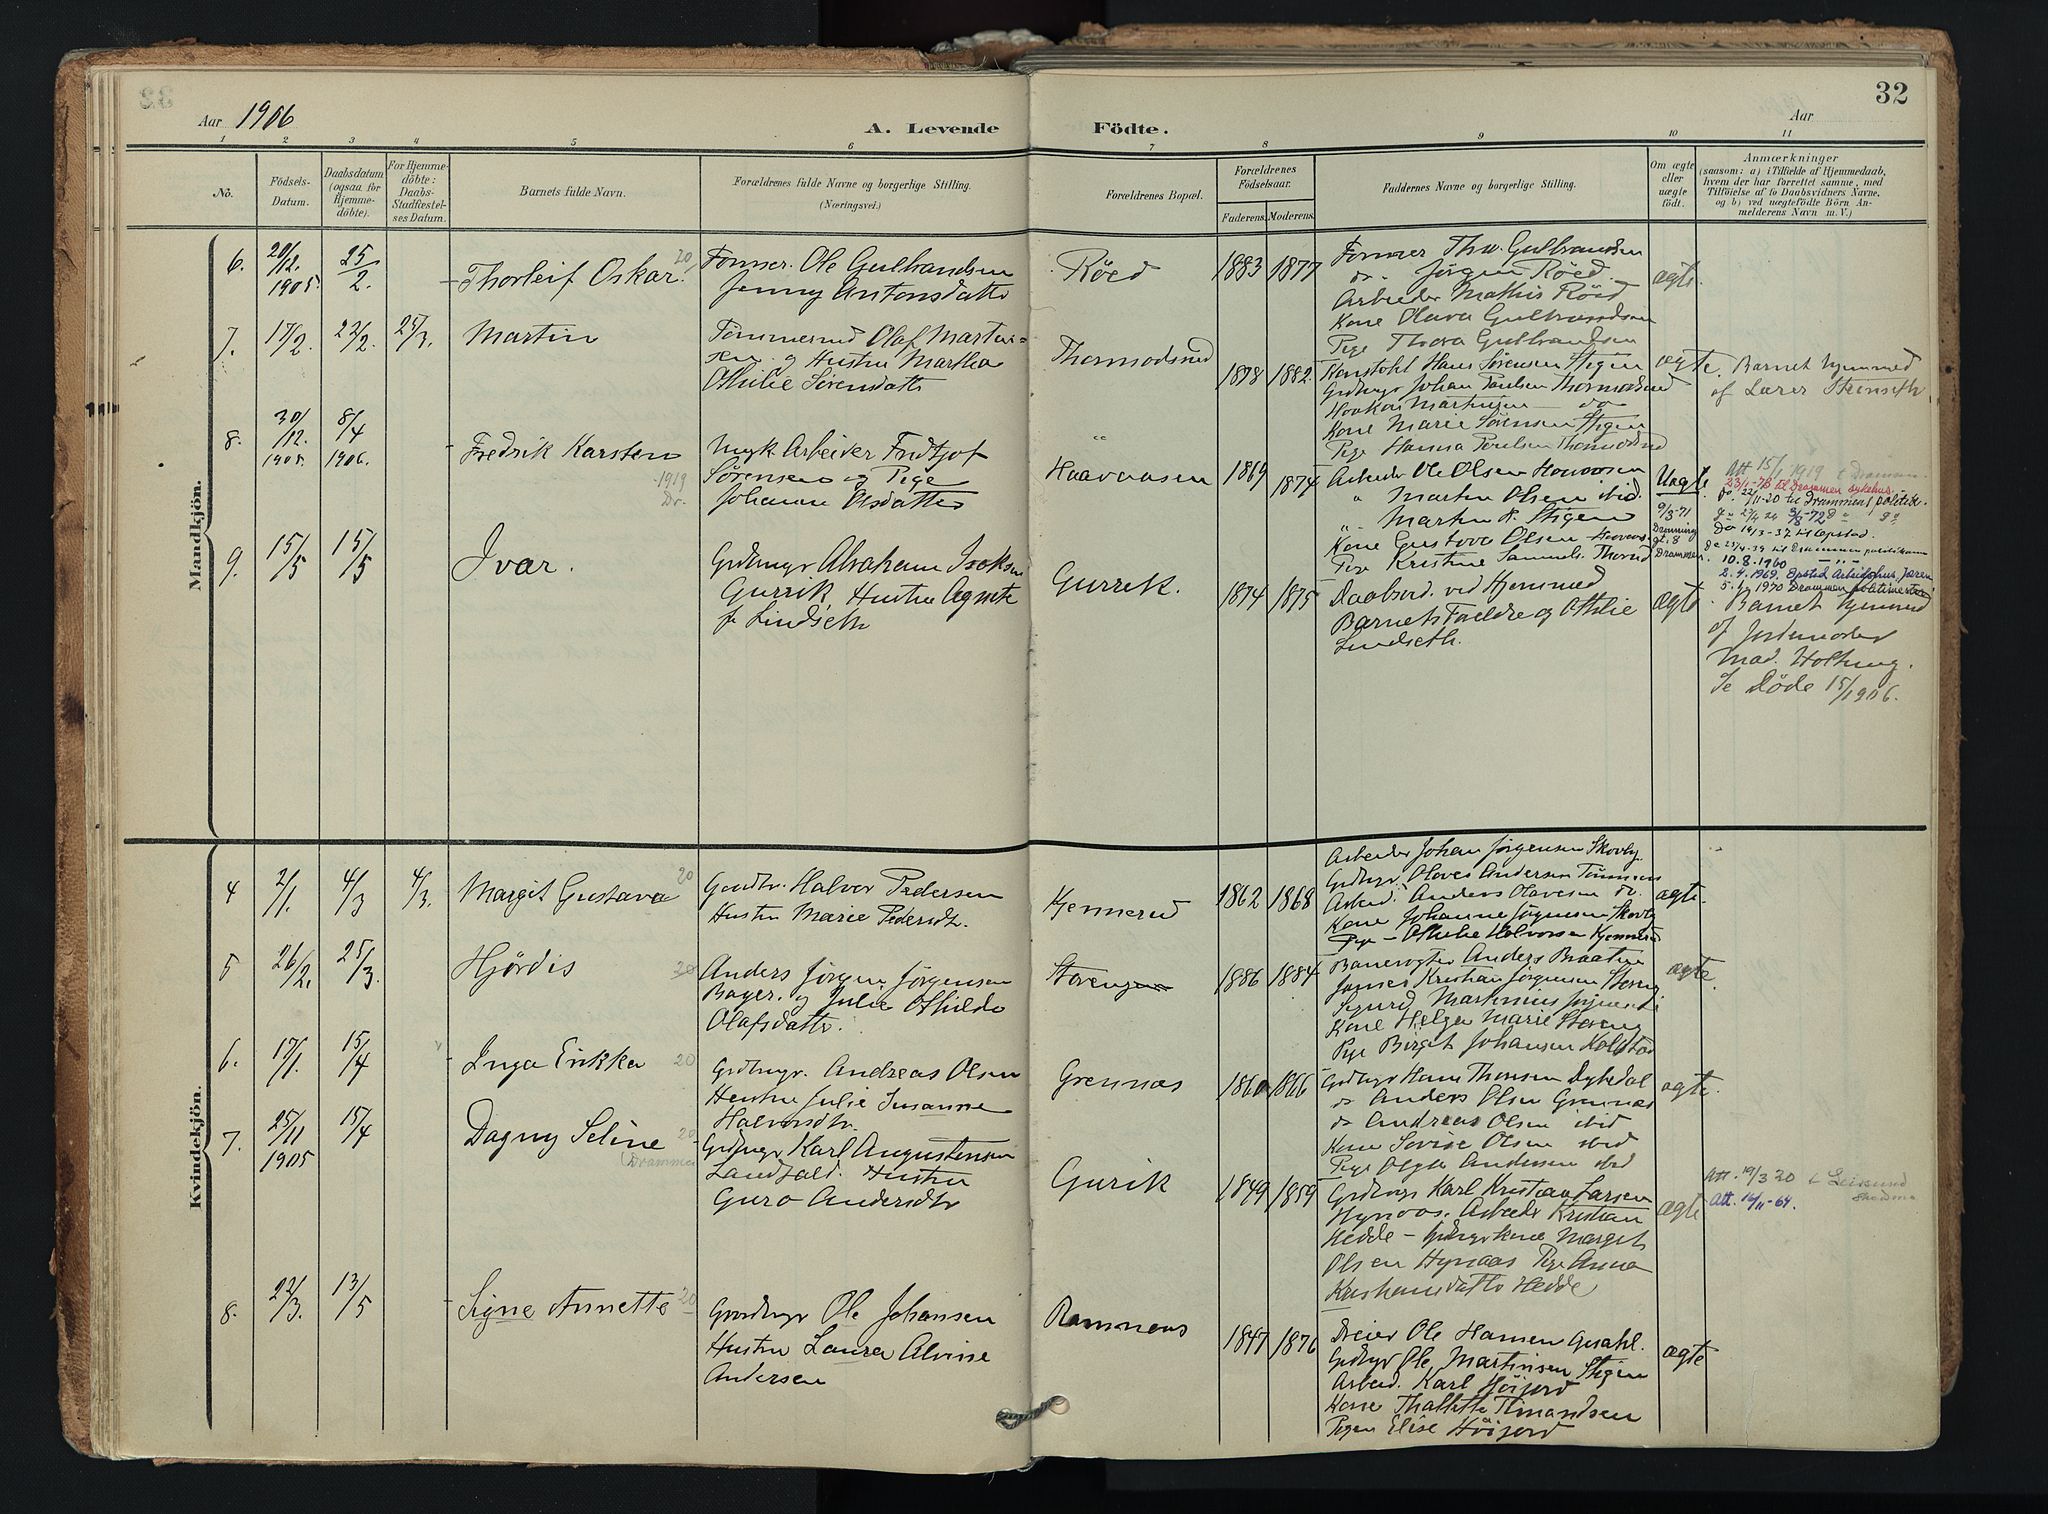 32
Aar 1906
A. Levende Födte.
Aar
1 2 3 4 5 6 7 8 9 10 11
No.
Födsels-
Datum.
Daabsdatum
(ogsaa for
Hjemme-
döbte).
For Hjemme-
döbte:
Daabs-
Stadfæstel-
ses Datum.
Barnets fulde Navn.
Forældrenes fulde Navne og borgerlige Stilling.
(Næringsvei.)
Forældrenes Bopæl.
Forældrenes
Födselsaar.
Faderens. Moderens.
Faddernes Navne og borgerlige Stilling.
Om ægte
eller
uægte
födt.
Anmærkninger
(saasom: a) i Tilfælde af Hjemmedaab,
hvem der har forrettet samme, med
Tilföielse af to Daabsvidners Navne,
og b) ved uægtefödte Börn An-
melderens Navn m. V.)
Mandkjön.
6.
20/12.
1905.
25/2.
Thorleif Oskar.
20
Ole Gulbrandsen
Jenny Antonsdatter
Röed
1883 1877
Gulbrandsen
do. Jörgen Röed.
Arbeider Mathis Röed
Kone Olava Gulbrandsen
Pige Thora Gulbrandsen
ægte.
7.
17/2.
22/2.
25/3.
Martin
Tömmermd Olaf Martin-
sen og Hustru Martha
Othilie Sørensdatter
Thormodsrud
1878 1882.
Hans Sørensen Stigen
Grdbrgr Johan Paulsen Thormodsrud
Haakon Martinsen do
Kone Marie Sørensen Stigen
Pige Hanna Poulsen Thormodsrud
ægte.
Barnet hjemmed
af Lærer Steenseth.
8.
30/12.
1905.
8/4
1906.
Fredrik Karsten
1919
Dr.
Arbeider Fridtjof
Sørensen og Pige
Johanne Olsdatter
Haavaasen
1869 1874
Arbeider Ole Olsen
" Martin Olsen ibid.
" Martin P. Stigen
Kone Gustava Olsen
Pige Kristine
Uægte
9/3-71
Drammen
Att 15/1 1919 t Drammen
23/1-73 til Drammen sykehus.
do. 22/11-20 til Drammens politik.
10.8.1960
2.4.1969. Opstad Arbeidshus, Jæren
1970 Drammen politikammer
9.
15/5
15/5
Ivar.
Grdbrgr Abraham
Gurrik Hustru Agnete
f. Lindseth
Gurrik.
1874 1875
Daabsvd. ved Hjemmed
Barnets Fældre og Othilie
Lindseth.
ægte.
Barnet hjemmed
af Jordmoder
Mad. Holtung.
Se Døde 15/1906.
Kvindekjön.
4
2/1.
4/3
4/3.
Margit Gustava
20
Halvor Pedersen
Hustru Marie Pedersdt.
Kjennerud
1862 1868
Arbeider Johan Jørgensen Skovby
Grdbrgr Olaves Andersen
Arbeid. Anders Olavesen do.
Kone Johanne Jørgensen Skovby
Pige - Othilie Halvorsen Kjennerud
ægte.
5
26/2.
25/3.
Hjørdis
20
Anders Jørgen Jørgensen
Bager. og Julie Othilde
Olafsdatter.
Storengen
1886 1884
Banevogter Anders Braaten
Kristian Jørgensen
Sigurd Martinius
Kone Helga Marie
Pige Birgit Johansen Kolstad
ægte.
6.
17/1.
15/4
Inga Erikka
20
Grdbrgr. Andreas Olsen
Hustru Julie Susanne
Halvorsdt.
Grennas
1860 1866
Grdbrgr Hans Thoresen Dybedal
do Anders Olsen Grennas
do Andreas Olsen ibid
Kone Lovise Olsen ibid
Pige Olga Andersen ibid
ægte.
7.
25/11
1905
15/4
Dagny Seline
20
(Drammen
Grdbrgr Karl Augustensen
Landfald. Hustru
Guro Andersdt.
Gurik
1849 1859
Grdbrgr Karl Kristian Larsen
Hynaas. Arbeider Kristian
Hedde - Grdbrgrkone Margit
Olsen Hynaas Pige Anna
Kristiansdatter Hedde
ægte
Att. 19/3 20
Att. 16/11-64.
8.
22/3.
13/5
Signe Annette
20
Gaardbrgr Ole Johansen
Hustru Laura Alvine
Andersen
Ramnaas
1847 1876
Dreier Ole Hansen
Grdbrgr Ole Martinsen Stigen
Arbeid. Karl Høijord
Kone Thallette Amandsen
Pigen Elise Høijord
ægte